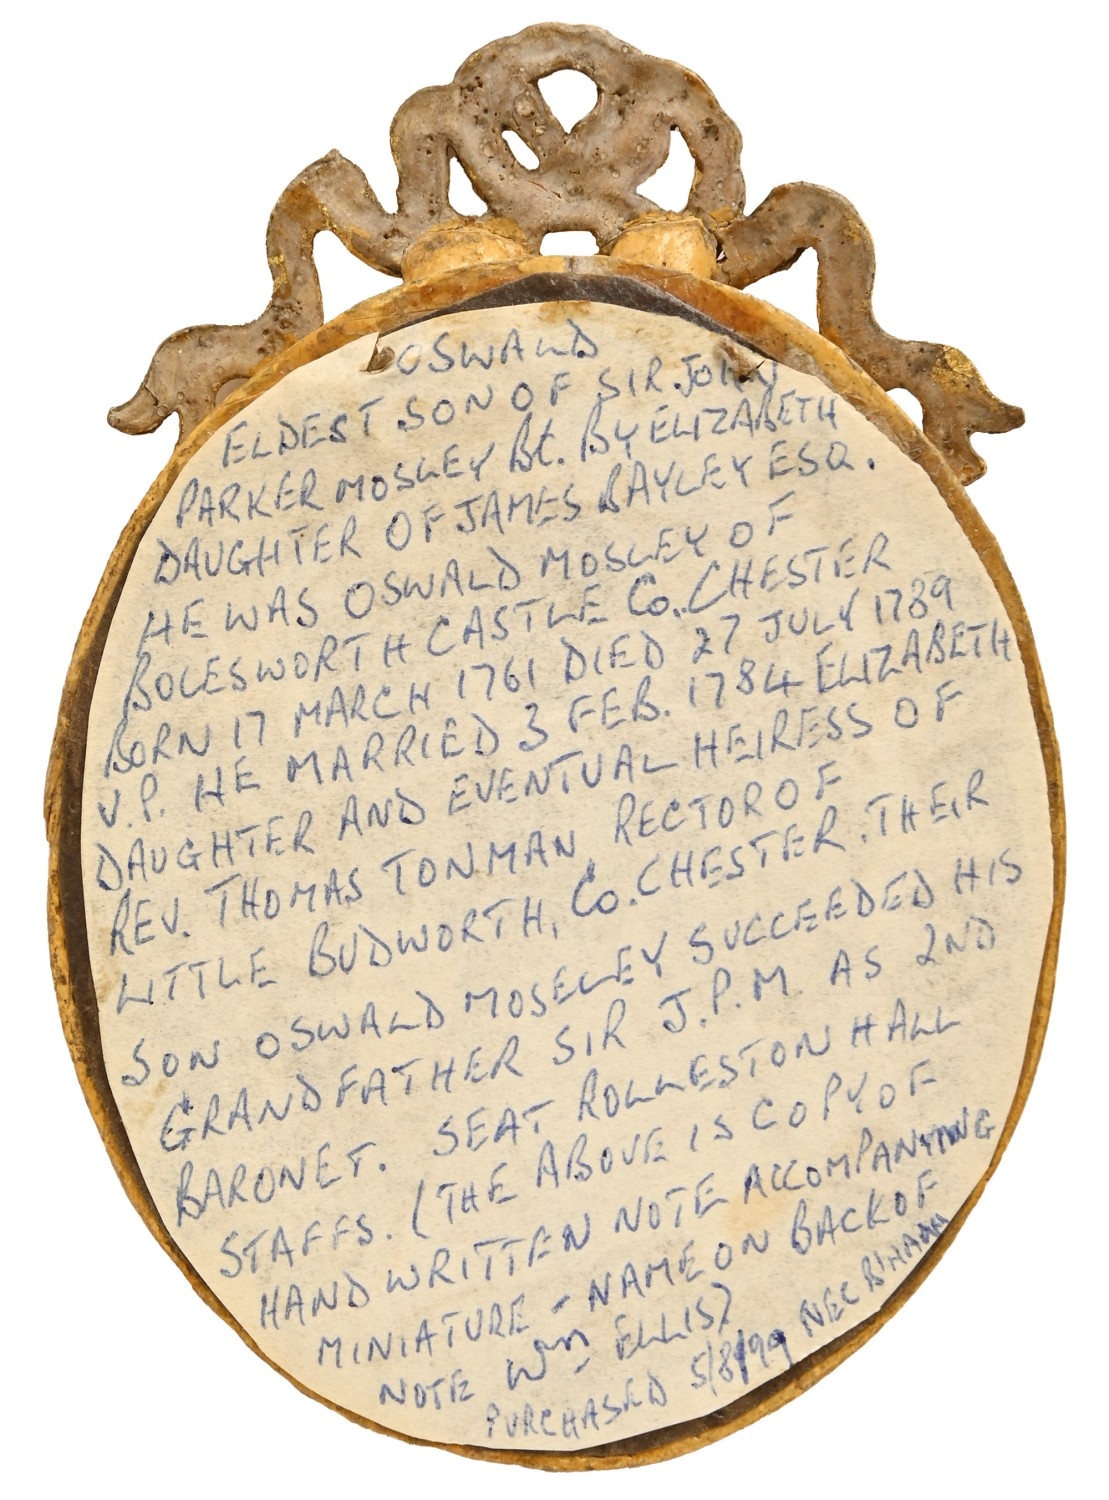 OSWALD
ELDEST SON OF SIR. JOHN
PARKER MOSLEY Bt. BY ELIZABETH
DAUGHTER OF JAMES BAYLEY ESQ.
HE WAS OSWALD MOSLEY OF
BOLESWORTH CASTLE Co. CHESTER
BORN 17 MARCH 1761 DIED 27 JULY 1789
V.P. HE MARRIED 3 FEB. 1784 ELIZABETH
DAUGHTER AND EVENTUAL HEIRESS OF
REV. THOMAS TONMAN RECTOR OF
LITTLE BUDWORTH, Co. CHESTER. THEIR
SON OSWALD MOSELEY SUCCEEDED HIS
GRANDFATHER SIR J.P.M AS 2ND
BARONET. SEAT ROLLESTON HALL
STAFFS. (THE ABOVE IS COPY OF
HAND WRITTEN NOTE ACCOMPANYING
MINIATURE - NAME ON BACK OF
NOTE Wm ELLIS)
PURCHASED 5/8/99 NEC B'HAM